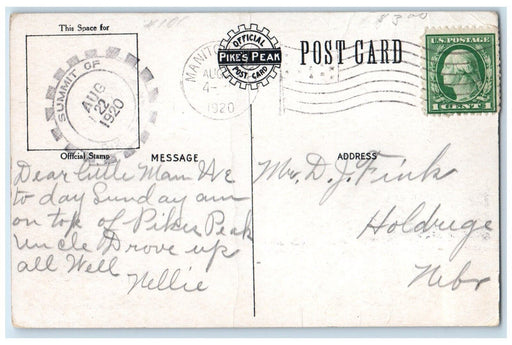 This Space for
SUMMIT OF
AUG
22
1920
Official Stamp
MANITOU
AUG
4-
1920
OFFICIAL
PIKE'S PEAK
POST CARD
POST CARD
$3.00
U.S. POSTAGE
1 CENT 1
MESSAGE
ADDRESS
Dear little Mam We
to day Sunday am
on top of Pikes Peak
Uncle Drove up
all Well
Nellie
Mr. D. J. Fink
Holdrege
Nebr